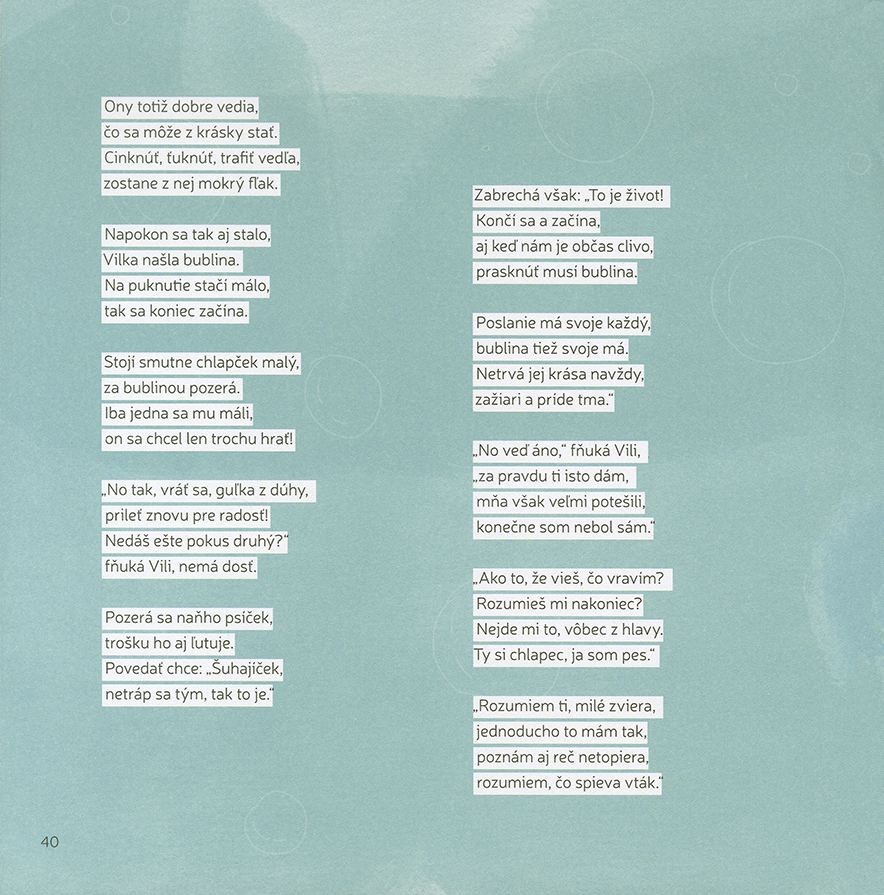 Ony totiž dobre vedia,
čo sa môže z krásky stať.
Cinknúť, ťuknúť, trafiť vedľa,
zostane z nej mokrý fľak.
Napokon sa tak aj stalo,
Vilka našla bublina.
Na puknutie stačí málo,
tak sa koniec začína.
Stojí smutne chlapček malý,
za bublinou pozerá.
Iba jedna sa mu máli,
on sa chcel len trochu hrať!
„No tak, vráť sa, guľka z dúhy,
prileť znovu pre radosť!
Nedáš ešte pokus druhý?“
fňuká Vili, nemá dosť.
Pozerá sa naňho psíček,
trošku ho aj ľutuje.
Povedať chce: „Šuhajíček,
netráp sa tým, tak to je.“
Zabrechá však: „To je život!
Končí sa a začína,
aj keď nám je občas clivo,
prasknúť musí bublina.
Poslanie má svoje každý,
bublina tiež svoje má.
Netrvá jej krása navždy,
zažiari a príde tma.“
„No veď áno,“ fňuká Vili,
„za pravdu ti isto dám,
mňa však veľmi potešili,
konečne som nebol sám.“
„Ako to, že vieš, čo vravím?
Rozumieš mi nakoniec?
Nejde mi to, vôbec z hlavy.
Ty si chlapec, ja som pes.“
„Rozumiem ti, milé zviera,
jednoducho to mám tak,
poznám aj reč netopiera,
rozumiem, čo spieva vták.“
40